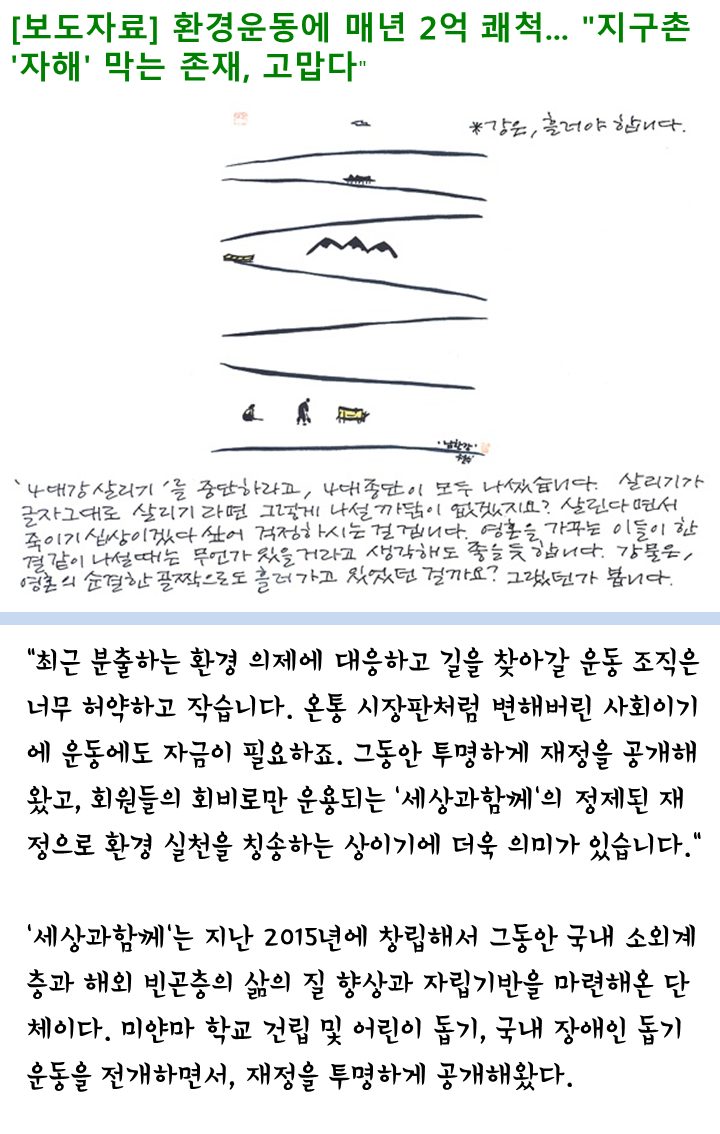 [보도자료] 환경운동에 매년 2억 쾌척... "지구촌
'자해' 막는 존재, 고맙다"
*강은, 흘러야 합니다.
'4대강 살리기'를 중단하라고, 4대종단이 모두 나섰습니다. 살리기가
글자 그대로 살리기라면 그렇게 나설 까닭이 없겠지요? 살린다면서
죽이기 십상이겠다 싶어 걱정하시는 걸 겁니다. 영혼을 가꾸는 이들이 한
결같이 나설 때는 무언가 있을거라고 생각해도 좋을 듯 합니다. 강물은,
영혼의 순결한 골짝으로도 흘러가고 있었던 걸까요? 그랬던가 봅니다.
"최근 분출하는 환경 의제에 대응하고 길을 찾아갈 운동 조직은
너무 허약하고 작습니다. 온통 시장판처럼 변해버린 사회이기
에 운동에도 자금이 필요하죠. 그동안 투명하게 재정을 공개해
왔고, 회원들의 회비로만 운용되는 '세상과함께'의 정제된 재
정으로 환경 실천을 칭송하는 상이기에 더욱 의미가 있습니다."
'세상과함께'는 지난 2015년에 창립해서 그동안 국내 소외계
층과 해외 빈곤층의 삶의 질 향상과 자립기반을 마련해온 단
체이다. 미얀마 학교 건립 및 어린이 돕기, 국내 장애인 돕기
운동을 전개하면서, 재정을 투명하게 공개해왔다.